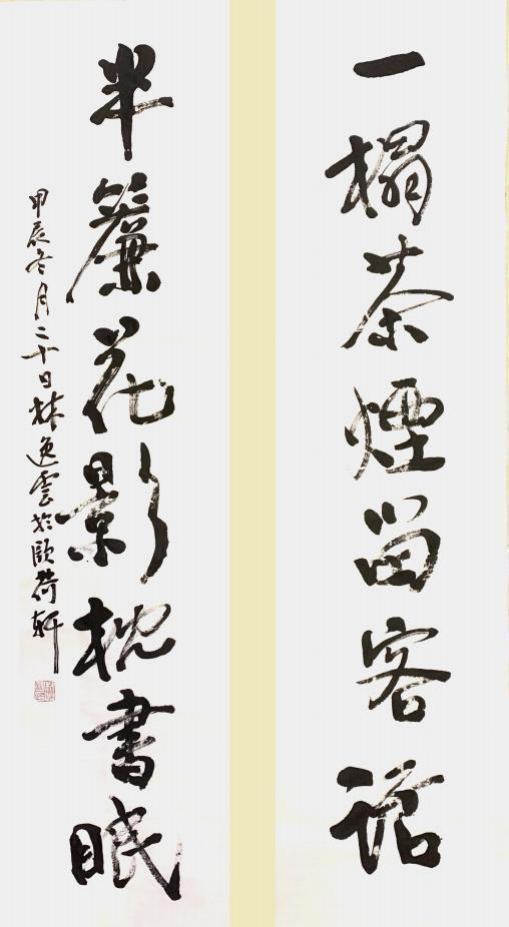 一榻茶煙留客話
半簾花影枕書眠
甲辰冬月二十日林逸雲於頤荷軒